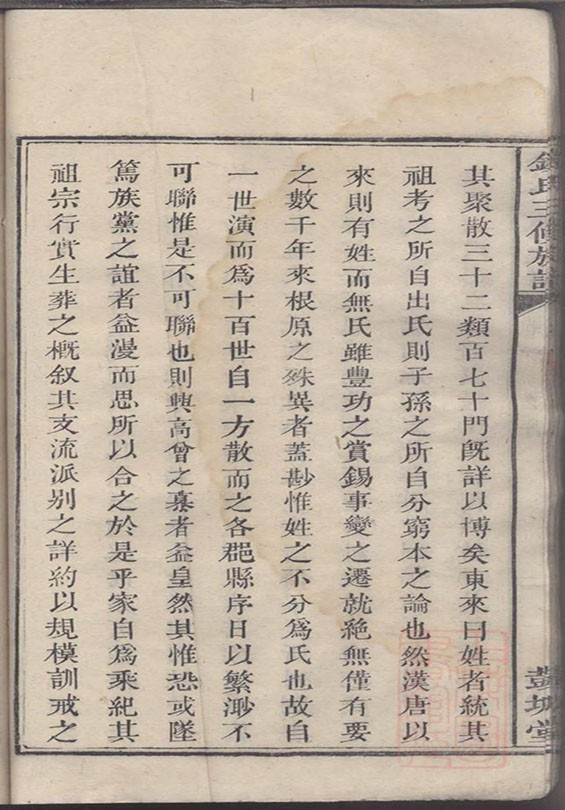 錢氏三修族譜
彭城堂
其聚散三十二類百七十門旣詳以博矣東來曰姓者統其
祖考之所自出氏則子孫之所自分窮本之論也然漢唐以
來則有姓而無氏雖豐功之賞錫事變之遷就絶無僅有要
之數千年來根原之殊異者蓋尠惟姓之不分爲氏也故自
一世演而爲十百世自一方散而之各郡縣序日以繁渺不
可聯惟是不可聯也則興高曾之慕者益皇然其惟恐或墜
篤族黨之誼者益漫而思所以合之於是乎家自爲乘紀其
祖宗行實生葬之概叙其支流派别之詳約以規模訓戒之